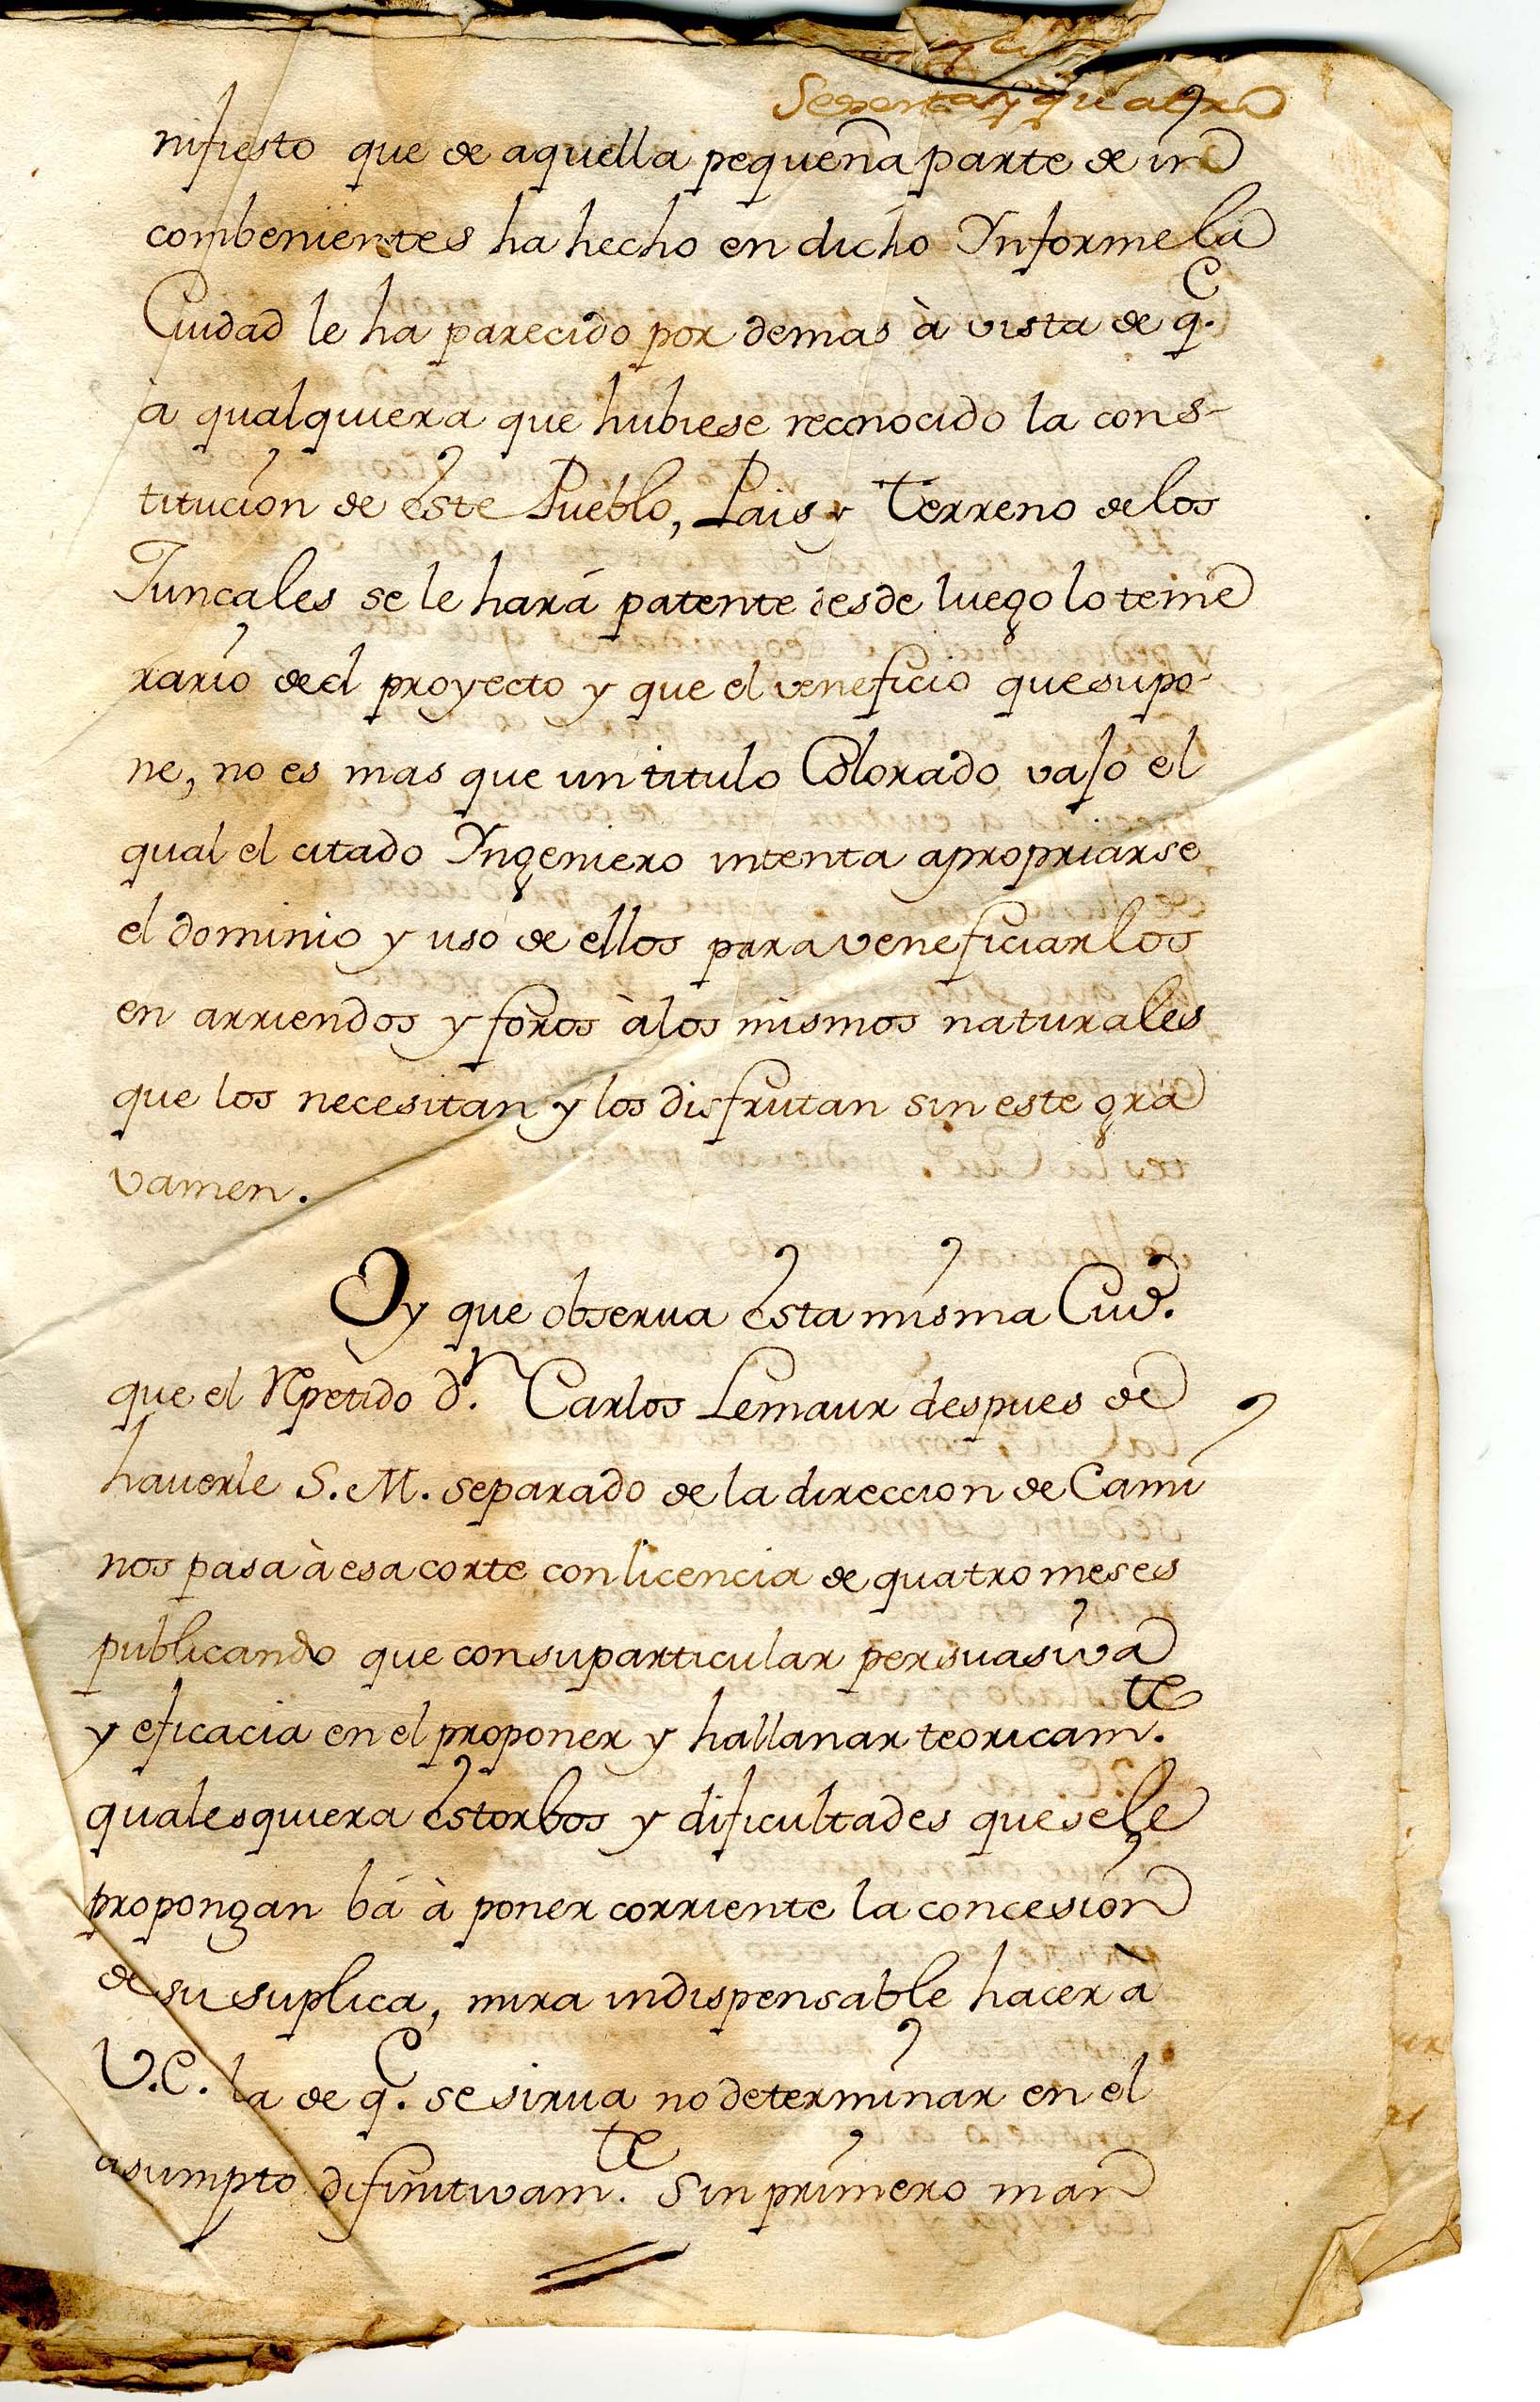 Sesenta y quatro
nifiesto que de aquella pequeña parte de in
combenientes ha hecho en dicho Ynforme la
Ciudad le ha parecido por demas à vista de q.e
à qualquiera que hubiese reconocido la cons-
titucion de este Pueblo, Pais y Terreno de los
Juncales se le hará patente desde luego lo teme
rario de el proyecto y que el veneficio que supo-
ne, no es mas que un titulo Colorado vajo el
qual el citado Yngeniero intenta apropriarse
el dominio y uso de ellos para veneficiarlos
en arriendos y foros à los mismos naturales
que los necesitan y los disfrutan sin este gra
vamen.
Oy que observa esta misma Ciud.
que el Rpetido d.n Carlos Lemaur despues de
hauerle S. M. separado de la direccion de Cami
nos pasa à esa corte con licencia de quatro meses
publicando que con su particular persuasiva
y eficacia en el proponer y hallanar teoricam.te
qualesquiera estorbos y dificultades que se le
propongan bá à poner corriente la concesion
de su suplica, mira indispensable hacer à
V.E. la de q.e se sirva no determinar en el
asumpto difinitivam.te sin primero man